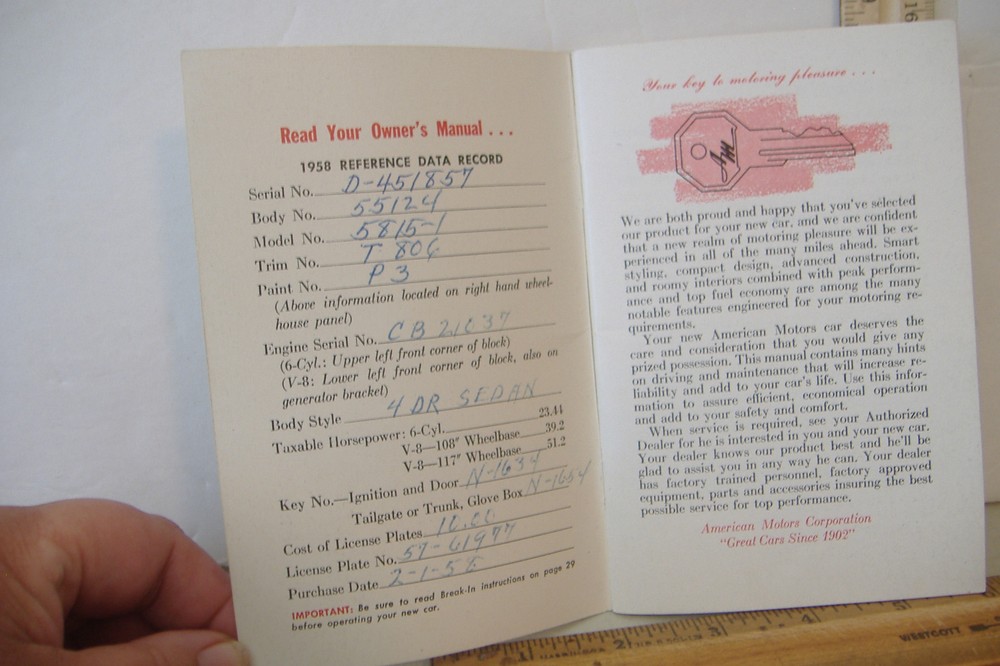 Read Your Owner's Manual . . .
1958 REFERENCE DATA RECORD
Serial No. D-451857
Body No. 55124
Model No. 5815-1
Trim No. T 806
Paint No. P3
(Above information located on right hand wheel-
house panel)
Engine Serial No. CB 21637
(6-Cyl.: Upper left front corner of block)
(V-8: Lower left front corner of block, also on
generator bracket)
Body Style 4 DR SEDAN
Taxable Horsepower: 6-Cyl. 23.44
V-8—108" Wheelbase 39.2
V-8—117" Wheelbase 51.2
Key No.—Ignition and Door N-1634
Tailgate or Trunk, Glove Box N-1654
Cost of License Plates 10.00
License Plate No. 57-61977
Purchase Date 2-1-58
IMPORTANT: Be sure to read Break-In instructions on page 29
before operating your new car.
Your key to motoring pleasure . . .
AM
We are both proud and happy that you've selected
our product for your new car, and we are confident
that a new realm of motoring pleasure will be ex-
perienced in all of the many miles ahead. Smart
styling, compact design, advanced construction,
and roomy interiors combined with peak perform-
ance and top fuel economy are among the many
notable features engineered for your motoring re-
quirements.
Your new American Motors car deserves the
care and consideration that you would give any
prized possession. This manual contains many hints
on driving and maintenance that will increase re-
liability and add to your car's life. Use this infor-
mation to assure efficient, economical operation
and add to your safety and comfort.
When service is required, see your Authorized
Dealer for he is interested in you and your new car.
Your dealer knows our product best and he'll be
glad to assist you in any way he can. Your dealer
has factory trained personnel, factory approved
equipment, parts and accessories insuring the best
possible service for top performance.
American Motors Corporation
"Great Cars Since 1902"
16
1 2 3 4 5
WESTCOTT